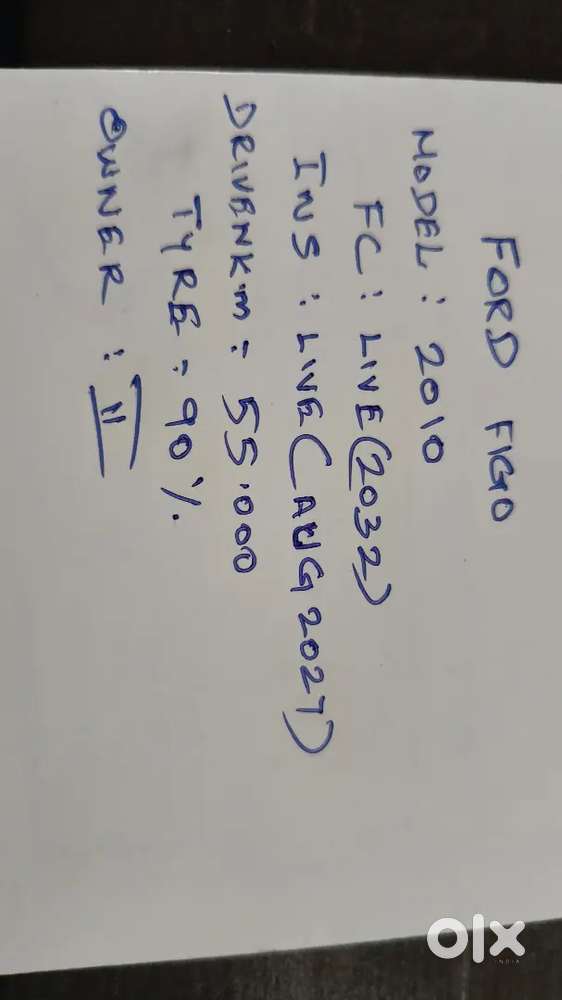 FORD FIGO
MODEL : 2010
FC : LIVE (2032)
INS : LIVE (AUG 2027)
DRIVENKM : 55.000
TYRE : 90%
OWNER : II
olx
INDIA